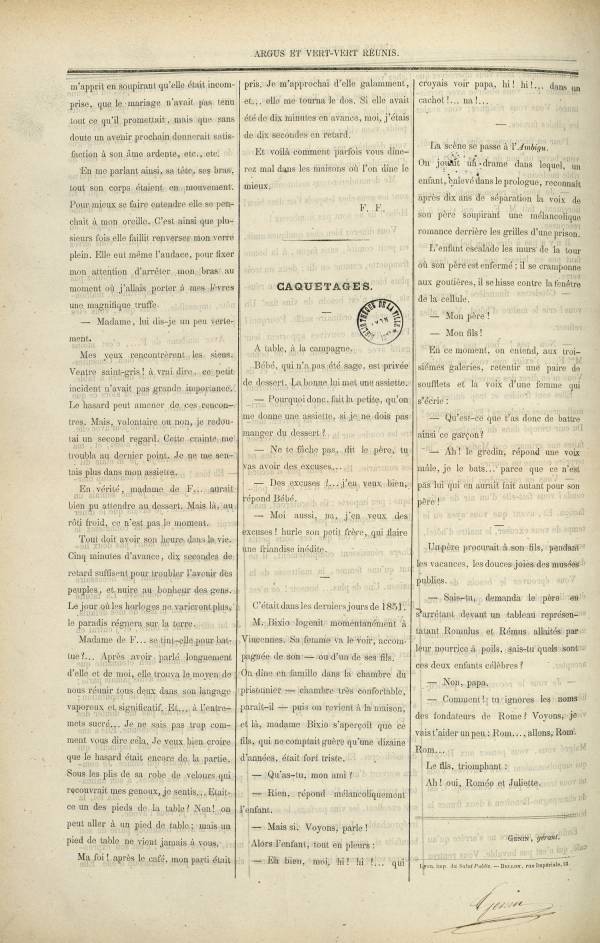 ARGUS ET VERT-VERT RÉUNIS.
m'apprit en soupirant qu'elle était incom-
prise, que le mariage n'avait pas tenu
tout ce qu'il promettait, mais que sans
doute un avenir prochain donnerait satis-
faction à son âme ardente, etc., etc.
En me parlant ainsi, sa tête, ses bras,
tout son corps étaient en mouvement.
Pour mieux se faire entendre elle se pen-
chait à mon oreille. C'est ainsi que plu-
sieurs fois elle faillit renverser mon verre
plein. Elle eut même l'audace, pour fixer
mon attention d'arrêter mon bras au
moment où j'allais porter à mes lèvres
une magnifique truffe.
— Madame, lui dis-je un peu verte-
ment.
Mes yeux rencontrèrent les siens.
Ventre saint-gris! à vrai dire, ce petit
incident n'avait pas grande importance.
Le hasard peut amener de ces rencon-
tres. Mais, volontaire ou non, je redou-
tai un second regard. Cette crainte me
troubla au dernier point. Je ne me sen-
tais plus dans mon assiette.
En vérité, madame de F... aurait
bien pu attendre au dessert. Mais là, au
rôti froid, ce n'est pas le moment.
Tout doit avoir son heure dans la vie.
Cinq minutes d'avance, dix secondes de
retard suffisent pour troubler l'avenir des
peuples, et nuire au bonheur des gens.
Le jour où les horloges ne varieront plus,
le paradis régnera sur la terre.
Madame de F... se tint-elle pour bat-
tue?... Après avoir parlé longuement
d'elle et de moi, elle trouva le moyen de
nous réunir tous deux dans son langage
vaporeux et significatif. Et... à l'entre-
mets sucré... Je ne sais pas trop com-
ment vous dire cela. Je veux bien croire
que le hasard était encore de la partie.
Sous les plis de sa robe de velours qui
recouvrait mes genoux, je sentis... Était-
ce un des pieds de la table? Non! on
peut aller à un pied de table; mais un
pied de table ne vient jamais à vous.
Ma foi! après le café, mon parti était
pris. Je m'approchai d'elle galamment,
et... elle me tourna le dos. Si elle avait
été de dix minutes en avance, moi, j'étais
de dix secondes en retard.
Et voilà comment parfois vous dîne-
rez mal dans les maisons où l'on dîne le
mieux.
F. F.
CAQUETAGES.
A table, à la campagne.
Bébé, qui n'a pas été sage, est privée
de dessert. La bonne lui met une assiette.
— Pourquoi donc, fait la petite, qu'on
me donne une assiette, si je ne dois pas
manger du dessert?
— Ne te fâche pas, dit le père, tu
vas avoir des excuses...
— Des excuses!... j'en veux bien,
répond Bébé.
— Moi aussi, na, j'en veux des
excuses! hurle son petit frère, qui flaire
une friandise inédite.
C'était dans les derniers jours de 1851.
M. Bixio logeait momentanément à
Vincennes. Sa femme va le voir, accom-
pagnée de son — ou d'un de ses fils.
On dîne en famille dans la chambre du
prisonnier — chambre très confortable,
paraît-il — puis on revient à la maison,
et là, madame Bixio s'aperçoit que ce
fils, qui ne comptait guère qu'une dizaine
d'années, était fort triste.
— Qu'as-tu, mon ami?
— Rien, répond mélancoliquement
l'enfant.
— Mais si. Voyons, parle!
Alors l'enfant, tout en pleurs:
— Eh bien, moi, hi! hi!... qui
croyais voir papa, hi! hi!... dans un
cachot!... na!...
La scène se passe à l'Ambigu.
On jouait un drame dans lequel, un
enfant, enlevé dans le prologue, reconnaît
après dix ans de séparation la voix de
son père soupirant une mélancolique
romance derrière les grilles d'une prison.
L'enfant escalade les murs de la tour
où son père est enfermé; il se cramponne
aux gouttières, il se hisse contre la fenêtre
de la cellule.
— Mon père!
— Mon fils!
En ce moment, on entend, aux troi-
sièmes galeries, retentir une paire de
soufflets et la voix d'une femme qui
s'écrie:
— Qu'est-ce que t'as donc de battre
ainsi ce garçon?
— Ah! le gredin, répond une voix
mâle, je le bats... parce que ce n'est
pas lui qui en aurait fait autant pour son
père!
Un père procurait à son fils, pendant
les vacances, les douces joies des musées
publics.
— Sais-tu, demanda le père en
s'arrêtant devant un tableau représen-
tatant Romulus et Rémus allaités par
leur nourrice à poils, sais-tu quels sont
ces deux enfants célèbres?
— Non, papa.
— Comment! tu ignores les noms
des fondateurs de Rome? Voyons, je
vais t'aider un peu: Rom..., allons, Rom.
Rom...
Le fils, triomphant:
Ah! oui, Roméo et Juliette.
GENIN, gérant.
Lyon, imp. du Salut Public. — BELLON, rue Impériale, 33
Genin